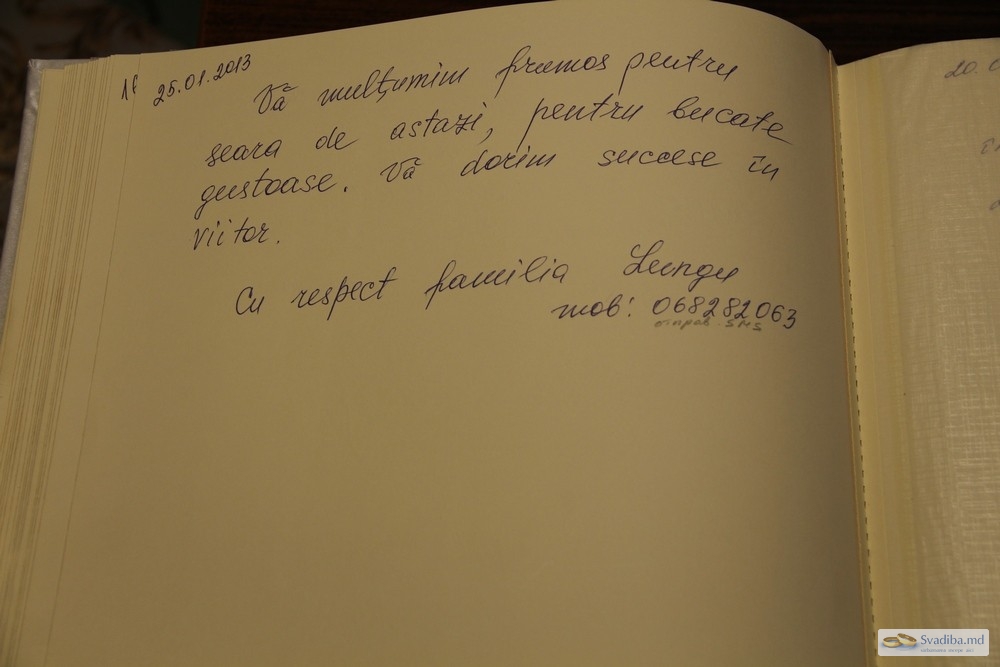 25.01.2013
Vă mulțumim frumos pentru
seara de astazi, pentru bucate
gustoase. Vă dorim succese în
viitor.
Cu respect familia Lungu
mob: 068282063
отправ. SMS
20.0
Svadiba.md